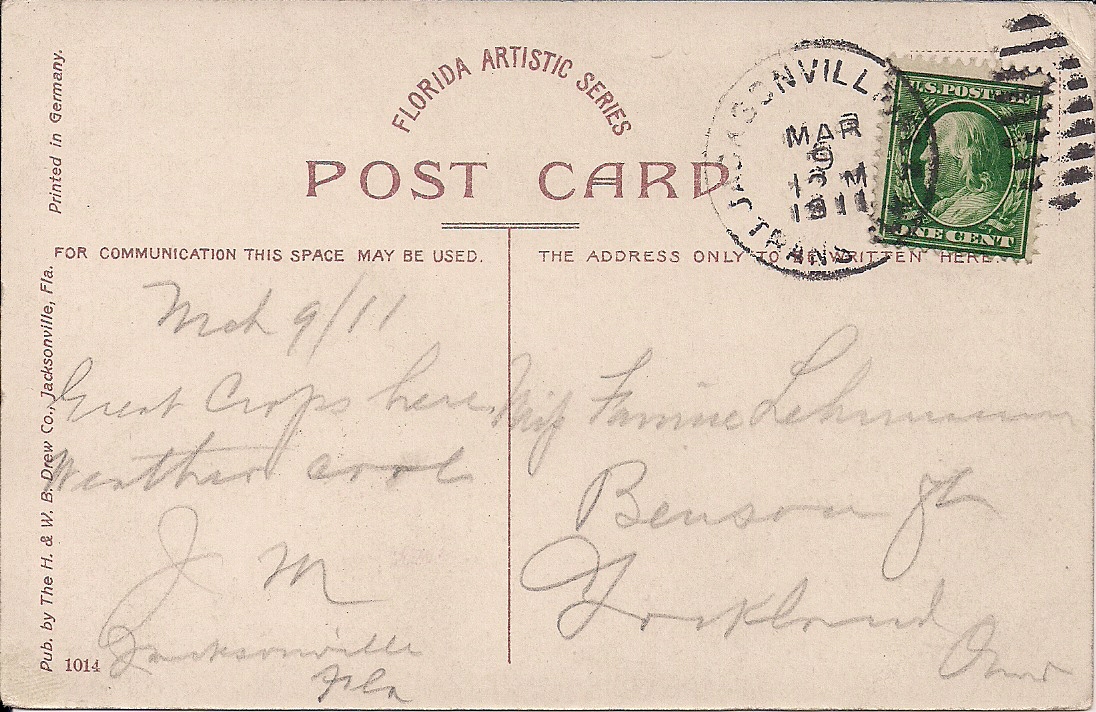 Printed in Germany.
Pub. by The H. & W. B. Drew Co., Jacksonville, Fla.
FLORIDA ARTISTIC SERIES
POST CARD
JACKSONVILLE
MAR
9
M
1911
TRANS
U.S. POSTAGE
ONE CENT
FOR COMMUNICATION THIS SPACE MAY BE USED.
THE ADDRESS ONLY TO BE WRITTEN HERE.
Mch 9/11
Great Crops here
Weather cool
J M
Jacksonville
Fla
1014
Miss Fannie Lehmann
Benson St
Lockland